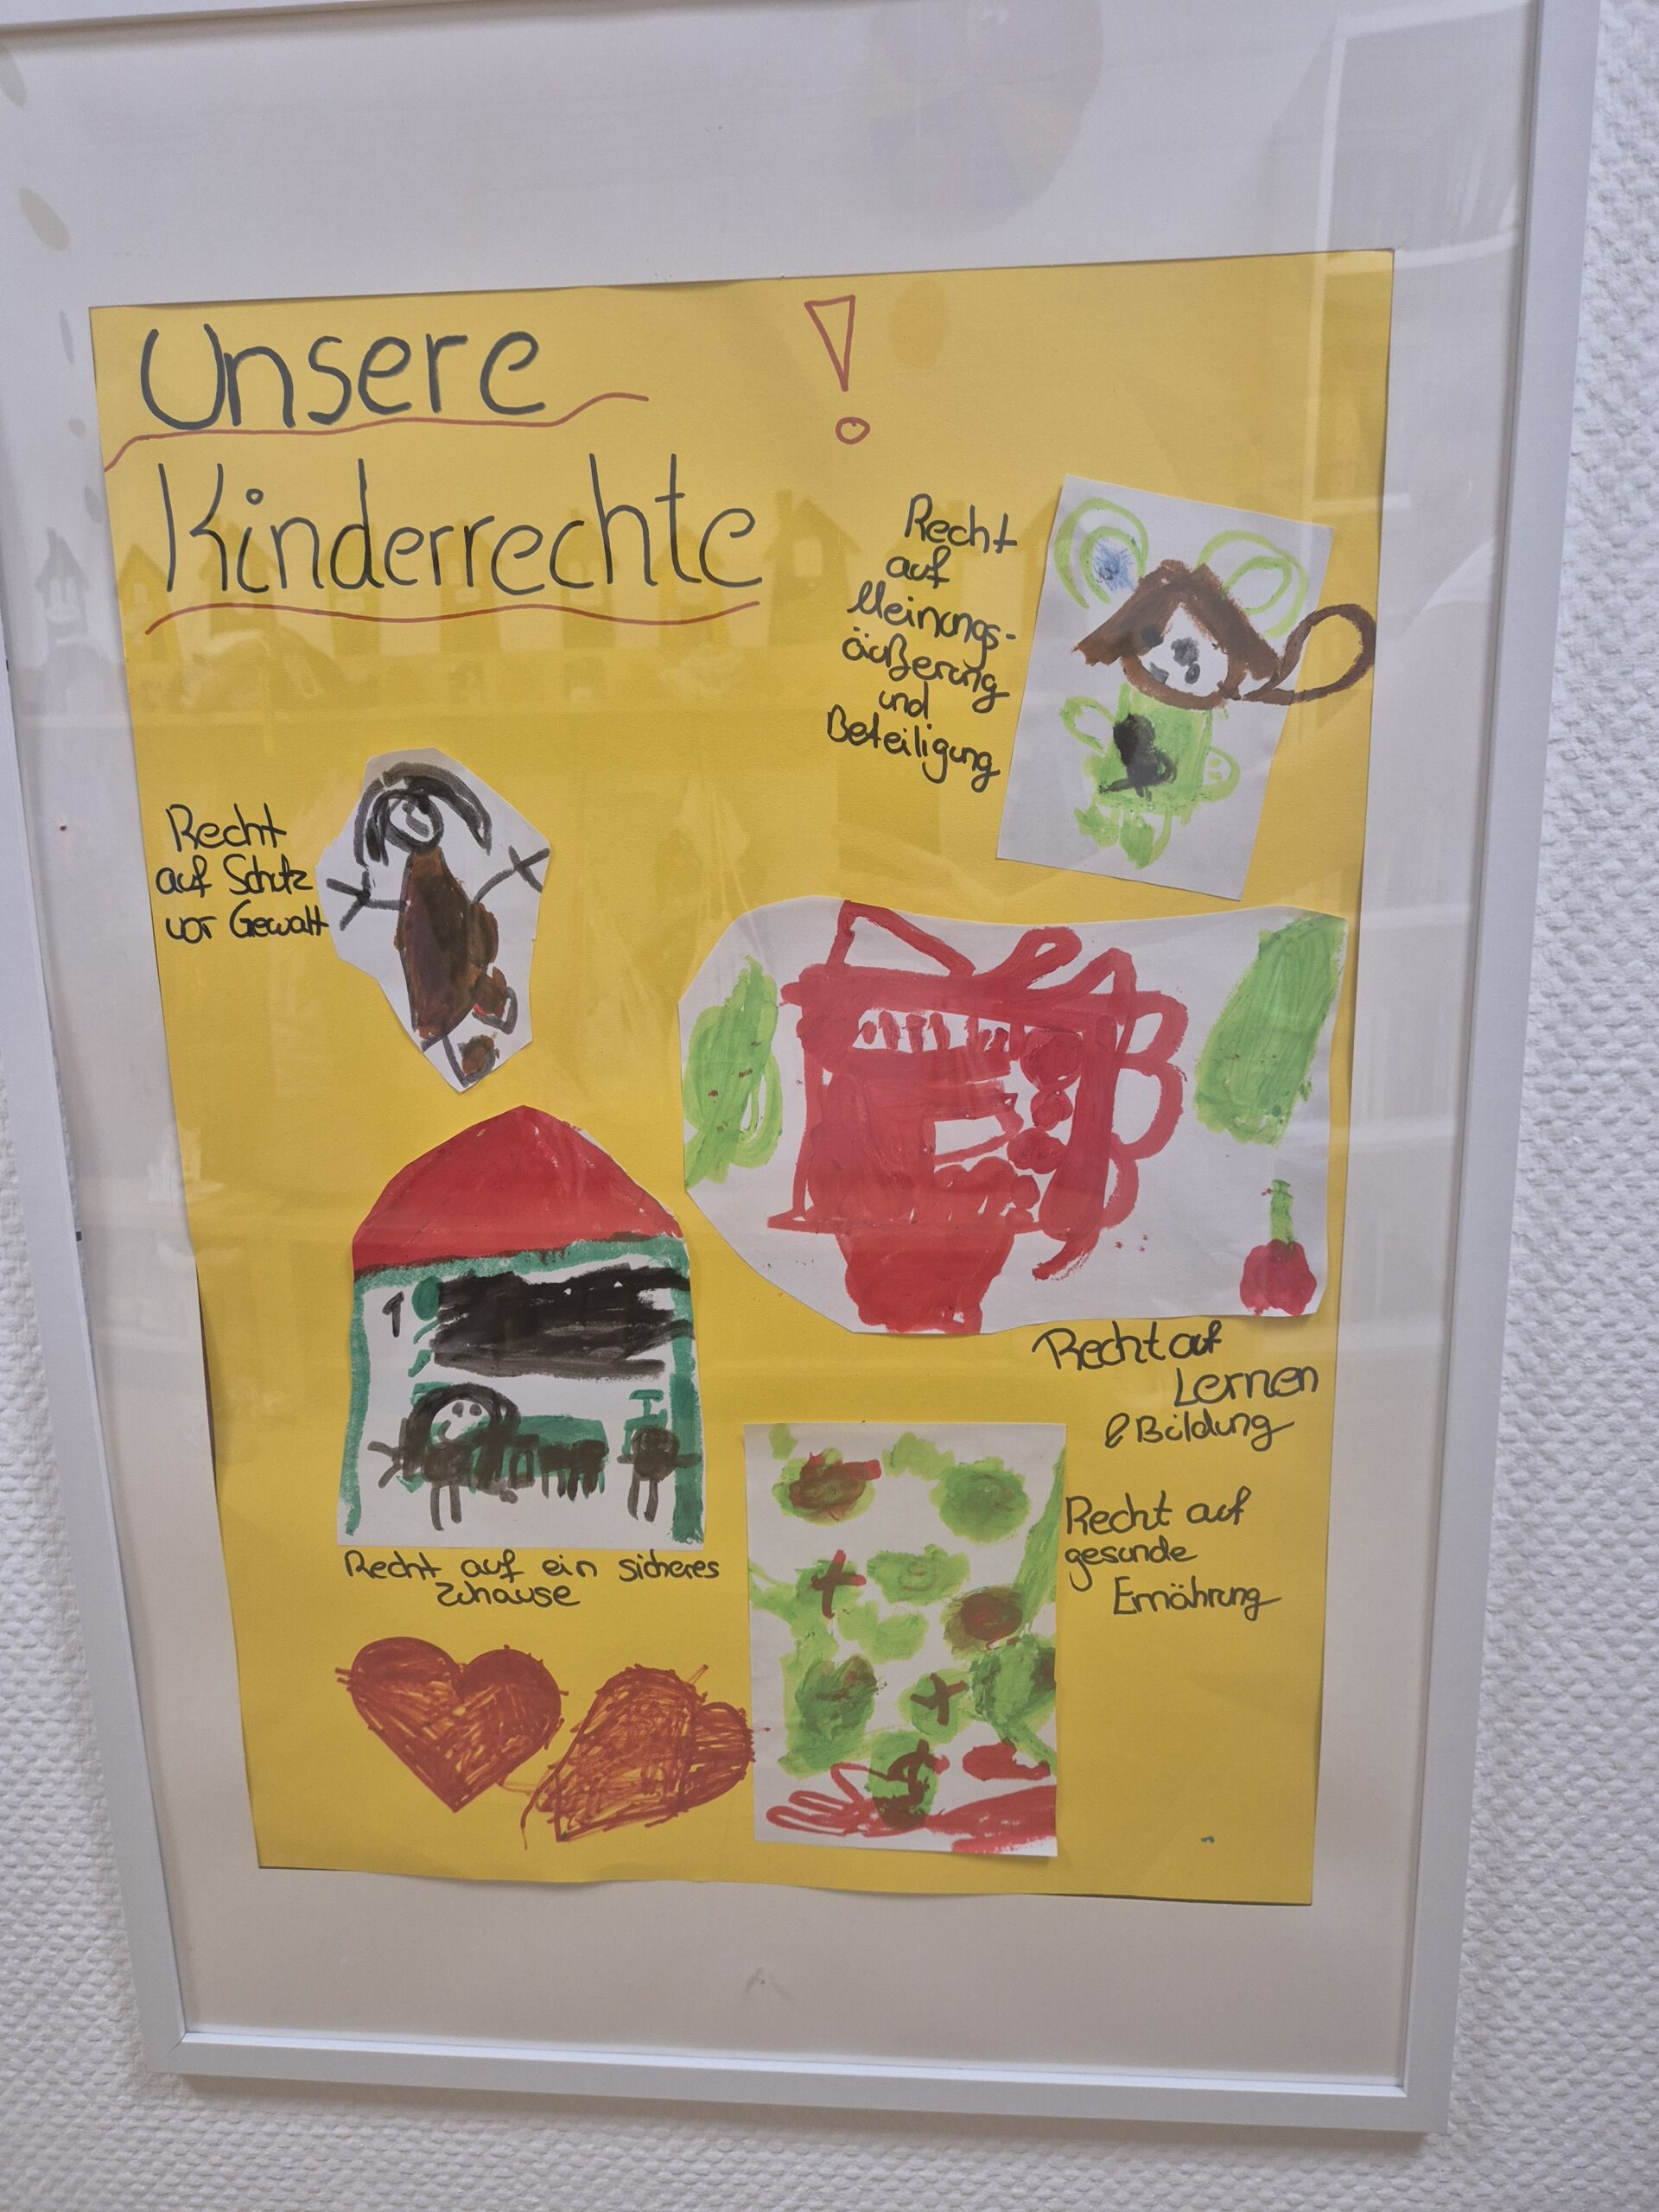 Unsere !
Kinderrechte
Recht
auf
Meinungs-
äußerung
und
Beteiligung
Recht
auf Schutz
vor Gewalt
Recht auf
Lernen
& Bildung
1
Recht auf ein sicheres
Zuhause
Recht auf
gesunde
Ernährung